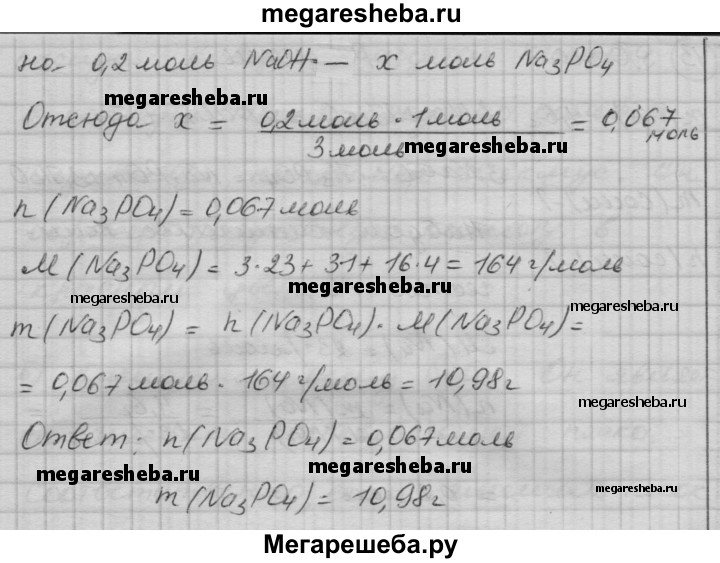 megaresheba.ru
но 0,2 моль NaOH — x моль Na3PO4
megaresheba.ru
Отсюда x = 0,2 моль · 1 моль / 3 моль = 0,067 моль
megaresheba.ru
n (Na3PO4) = 0,067 моль
M (Na3PO4) = 3·23 + 31 + 16·4 = 164 г/моль
megaresheba.ru megaresheba.ru megaresheba.ru
m (Na3PO4) = n (Na3PO4) · M (Na3PO4) =
= 0,067 моль · 164 г/моль = 10,98 г
megaresheba.ru
Ответ: n (Na3PO4) = 0,067 моль
megaresheba.ru megaresheba.ru
m (Na3PO4) = 10,98 г
megaresheba.ru
Мегарешеба.ру